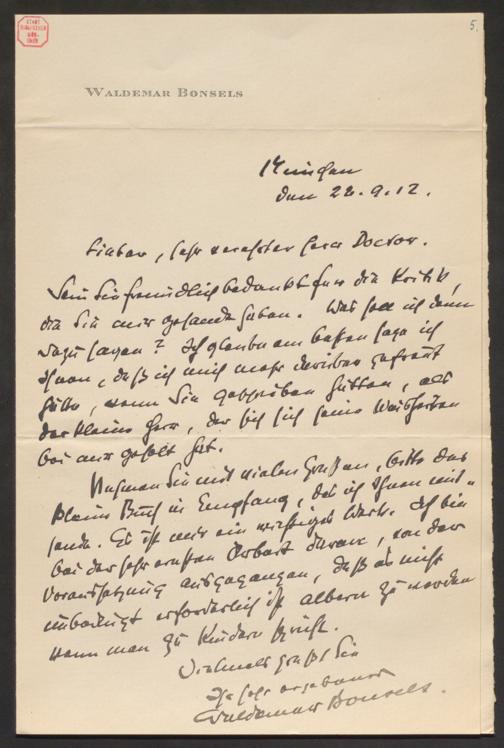 5.
WALDEMAR BONSELS
München
den 22.9.12.
Lieber, sehr verehrter Herr Doctor.
Sein Sie freundlich bedankt für die Kritik,
die Sie mir gesandt haben. Was soll ich denn
dazu sagen? Ich glaube am besten sage ich
Ihnen, daß ich mich mehr darüber gefreut
hätte, wenn Sie geschrieben hätten, als
der kleine Herr, der sich seine Weisheiten
bei mir geholt hat.
Nehmen Sie mit vielen Grüßen, bitte das
kleine Buch in Empfang, das ich Ihnen mit-
sende. Es ist mir ein wichtiges Werk. Ich bin
bei der sehr ernsten Arbeit daran, von der
Voraussetzung ausgegangen, daß es nicht
unbedingt erforderlich ist albern zu werden
wenn man zu Kindern spricht.
Vielmals grüßt Sie
Ihr sehr ergebener
Waldemar Bonsels.